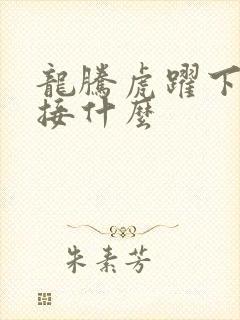 龍騰虎躍下
接什麼
朱素芳